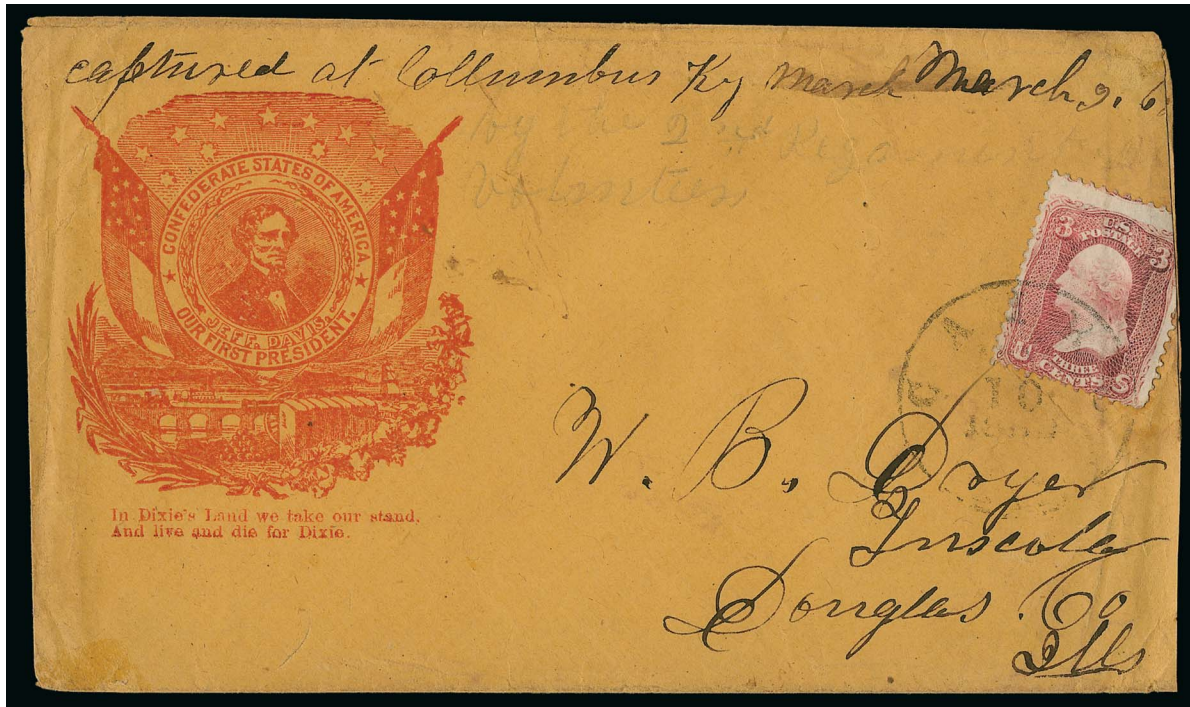 captured at Collumbus Ky March March 9. 6
by the 2nd
Volunteers
CONFEDERATE STATES OF AMERICA.
JEFF. DAVIS,
OUR FIRST PRESIDENT.
In Dixie's Land we take our stand,
And live and die for Dixie.
3 U.S. 3
POSTAGE
U CENTS S
10
W. B. Dryer
Tuscola
Douglas Co
Ills